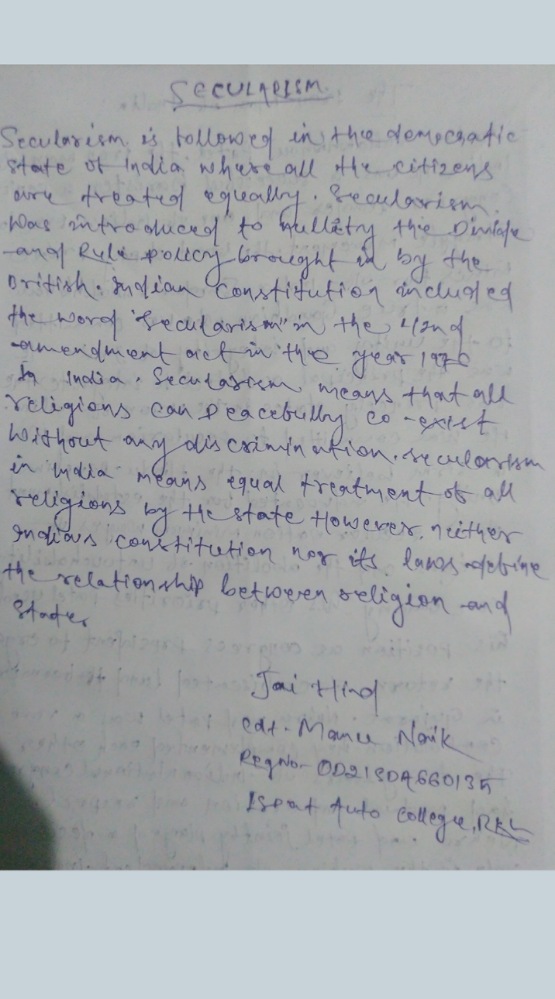 SECULARISM
Secularism is followed in the democratic
state of India where all the citizens
are treated equally. Secularism
was introduced to nullify the Divide
and Rule policy brought in by the
British. Indian Constitution included
the word "Secularism" in the 42nd
amendment act in the year 1976
In India. Secularism means that all
religions can peacefully co-exist
without any discrimination. Secularism
in India means equal treatment of all
religions by the state However, neither
India's constitution nor its laws define
the relationship between religion and
State.
Jai Hind
Cdt. Manu Naik
Reg No- OD21SDA660135
Ispat Auto College, RKL